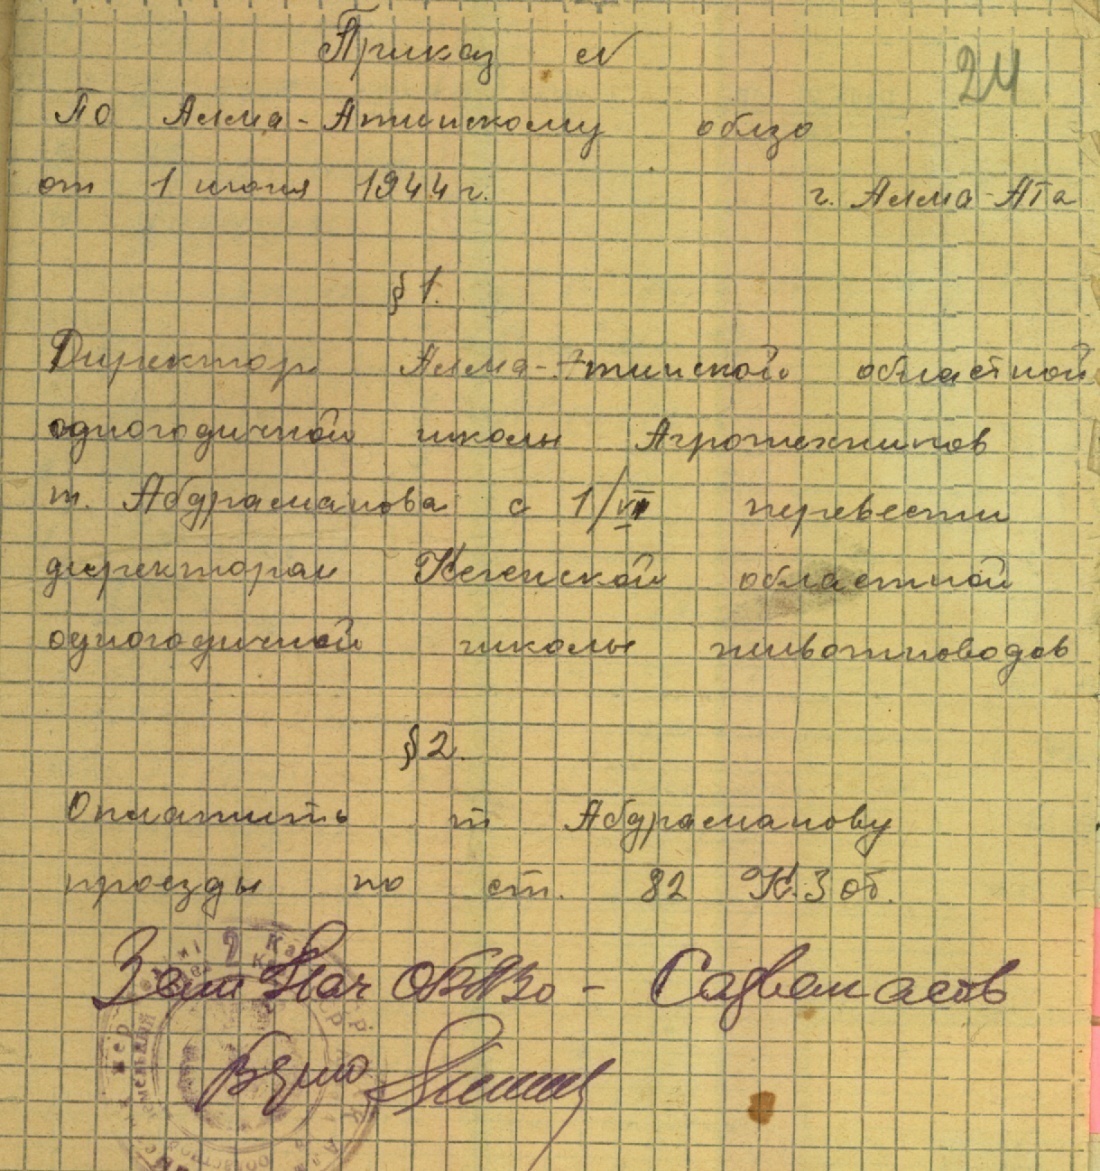 Приказ №
24
По Алма-Атинскому облзо
от 1 июня 1944 г. г. Алма-Ата
§ 1.
Директор Алма-Атинской областной
одногодичной школы Агротехников
т. Абдрасманова с 1/VI перевести
директором Кегенской областной
одногодичной школы животноводов
§ 2.
Оплатить т Абдрасманову
проезды по ст. 82 К.З об.
Зам Нач ОблЗо -
Верно